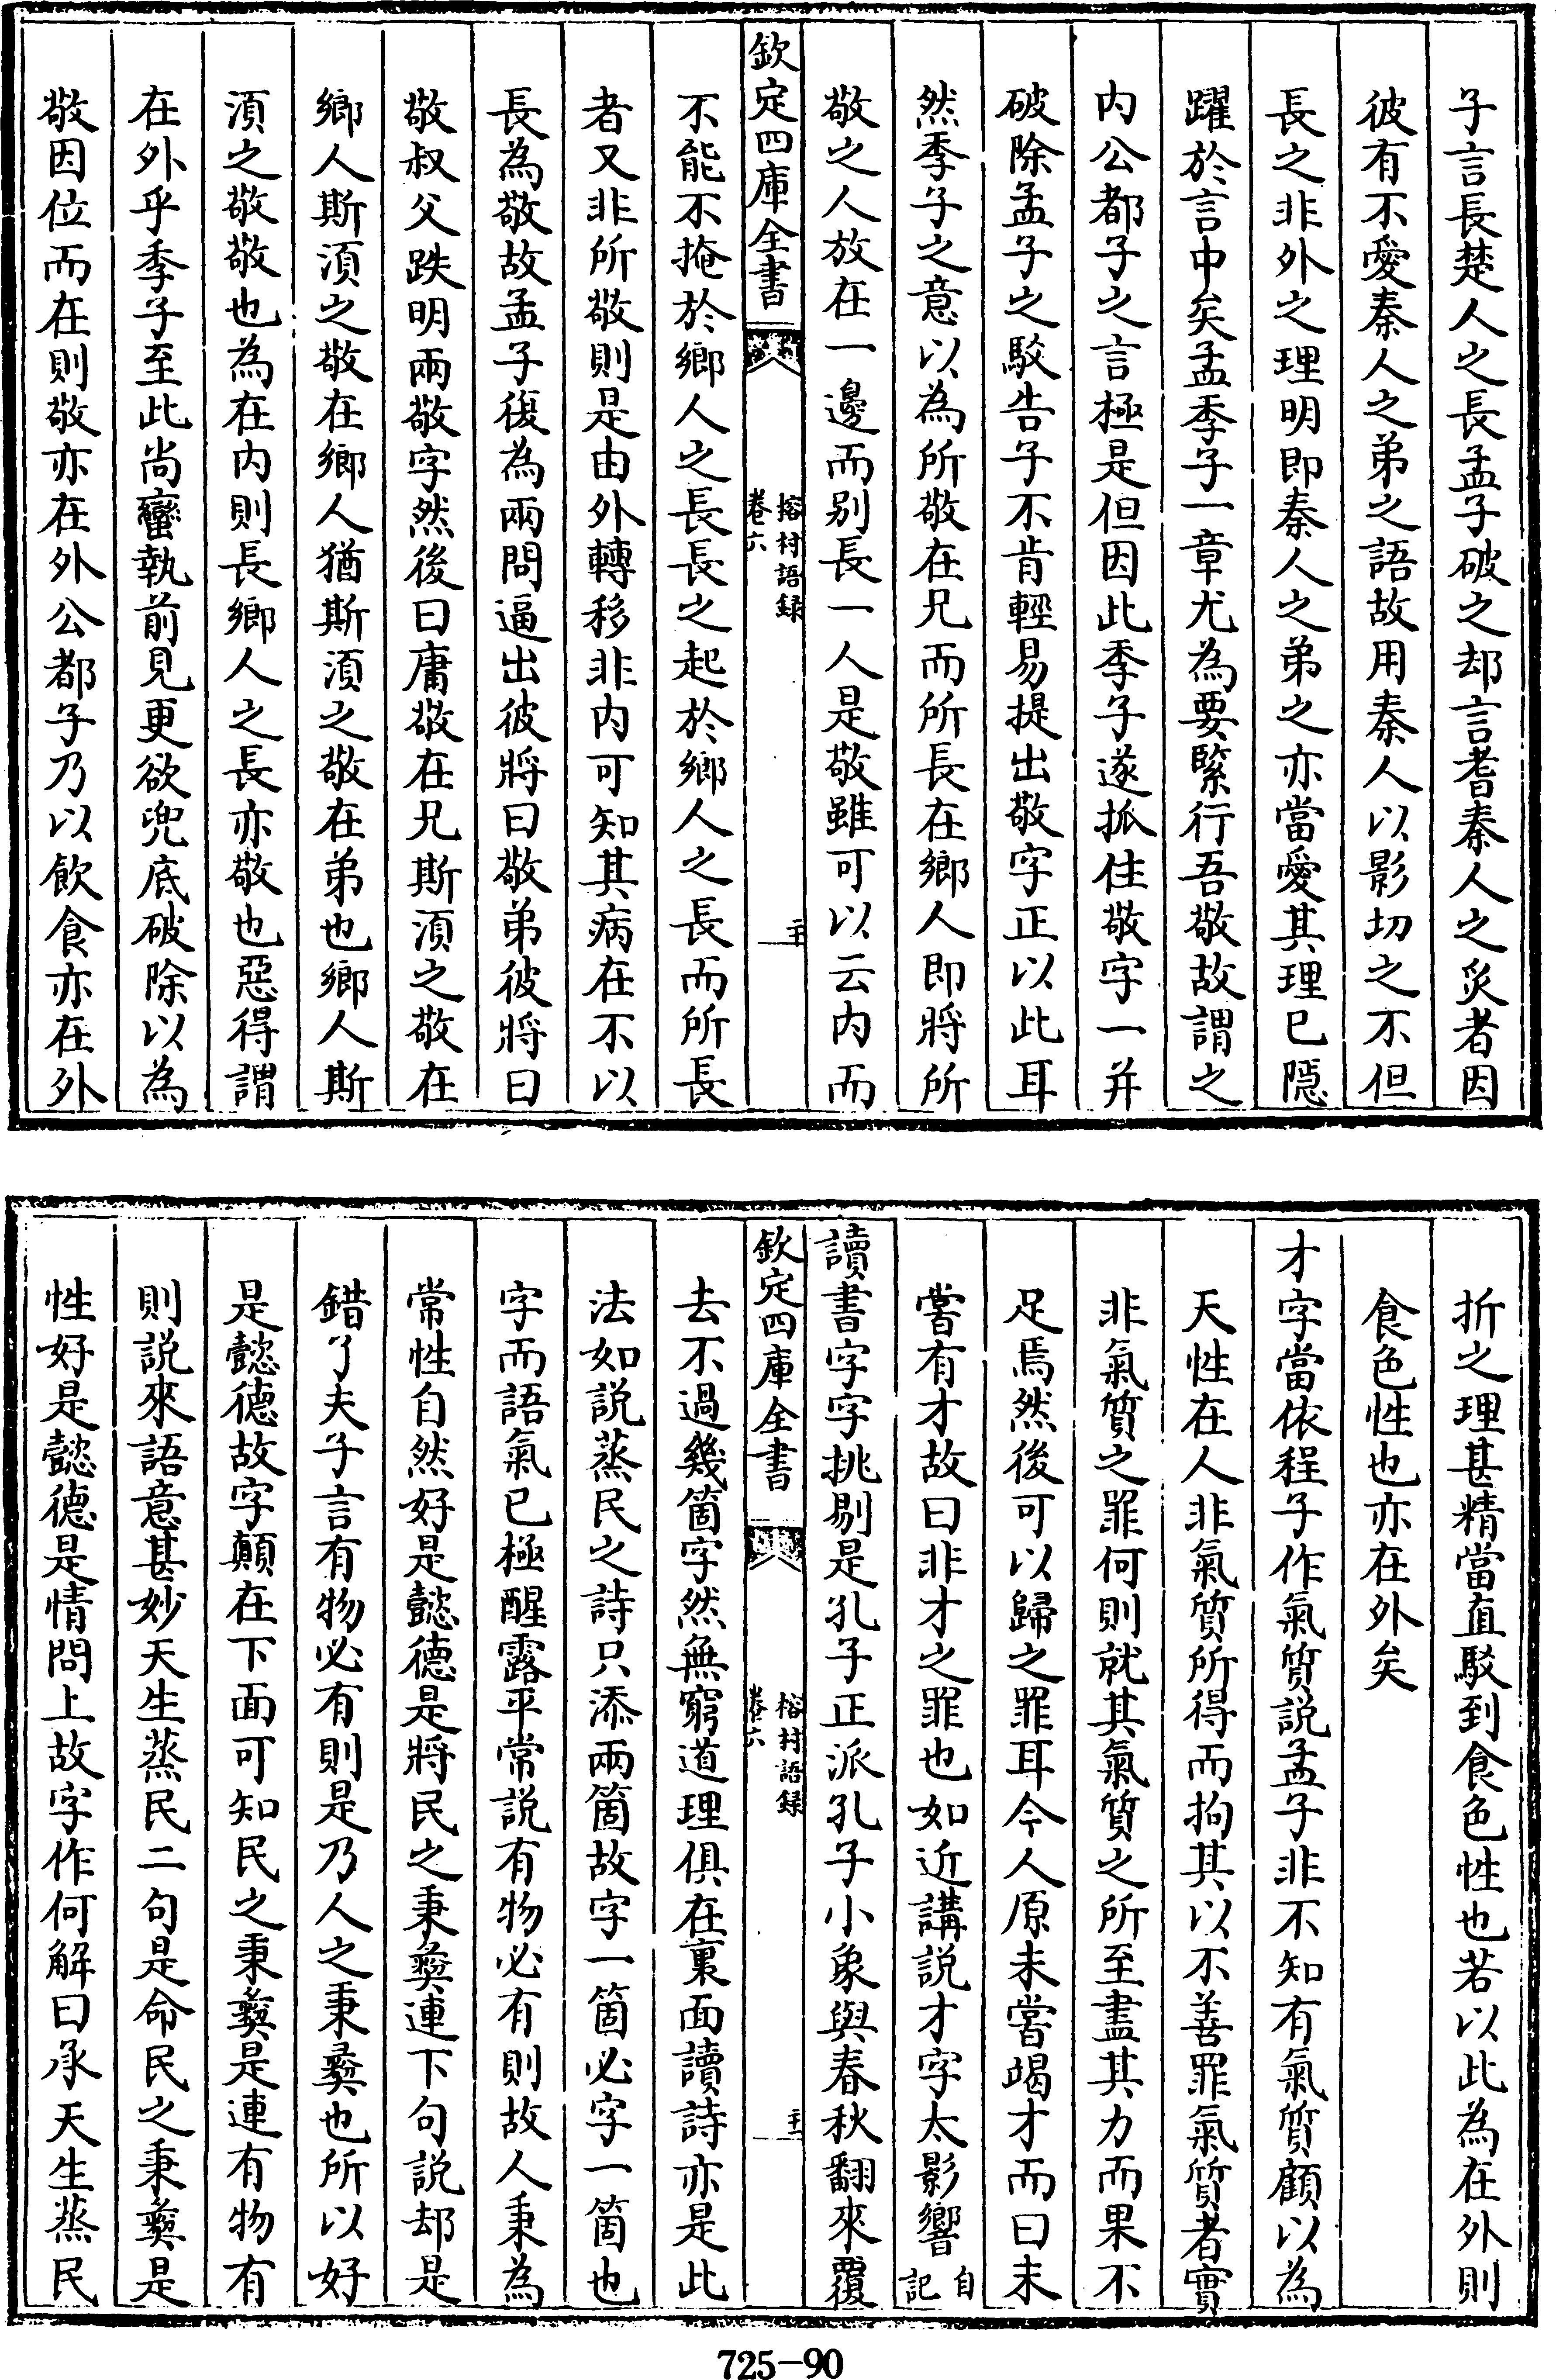 子言長楚人之長孟子破之却言耆秦人之炙者因
彼有不愛秦人之弟之語故用秦人以影切之不但
長之非外之理明即秦人之弟之亦當愛其理已隠
躍於言中矣孟季子一章尤為要緊行吾敬故謂之
内公都子之言極是但因此季子遂抓住敬字一并
破除孟子之駁告子不肯輕易提出敬字正以此耳
然季子之意以為所敬在兄而所長在鄉人即將所
敬之人放在一邊而别長一人是敬雖可以云内而
欽定四庫全書
榕村語録
卷六
二十
不能不掩於鄉人之長長之起於鄉人之長而所長
者又非所敬則是由外轉移非内可知其病在不以
長為敬故孟子復為兩問逼出彼將曰敬弟彼將曰
敬叔父跌明兩敬字然後曰庸敬在兄斯湏之敬在
鄉人斯湏之敬在鄉人猶斯湏之敬在弟也鄉人斯
湏之敬敬也為在内則長鄉人之長亦敬也惡得謂
在外乎季子至此尚蠻執前見更欲兜底破除以為
敬因位而在則敬亦在外公都子乃以飲食亦在外
折之理甚精當直駁到食色性也若以此為在外則
食色性也亦在外矣
才字當依程子作氣質説孟子非不知有氣質顧以為
天性在人非氣質所得而拘其以不善罪氣質者實
非氣質之罪何則就其氣質之所至盡其力而果不
足焉然後可以歸之罪耳今人原未嘗竭才而曰未
嘗有才故曰非才之罪也如近講説才字太影響自記
讀書字字挑剔是孔子正派孔子小象與春秋翻來覆
欽定四庫全書
榕村語録
卷六
二十一
去不過幾箇字然無窮道理俱在裏面讀詩亦是此
法如説蒸民之詩只添兩箇故字一箇必字一箇也
字而語氣已極醒露平常説有物必有則故人秉為
常性自然好是懿德是將民之秉彝連下句説却是
錯了夫子言有物必有則是乃人之秉彝也所以好
是懿德故字顛在下面可知民之秉彝是連有物有
則説來語意甚妙天生蒸民二句是命民之秉彝是
性好是懿德是情問上故字作何解曰承天生蒸民
725-90